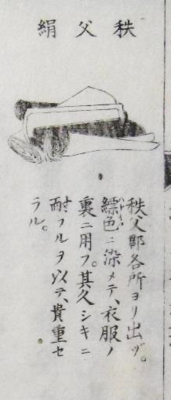 秩父絹
秩父郡各所ヨリ出ヅ。
縹色ニ染メテ、衣服ノ
裏ニ用フ。其久シキニ
耐フルヲ以テ、貴重セ
ラル。